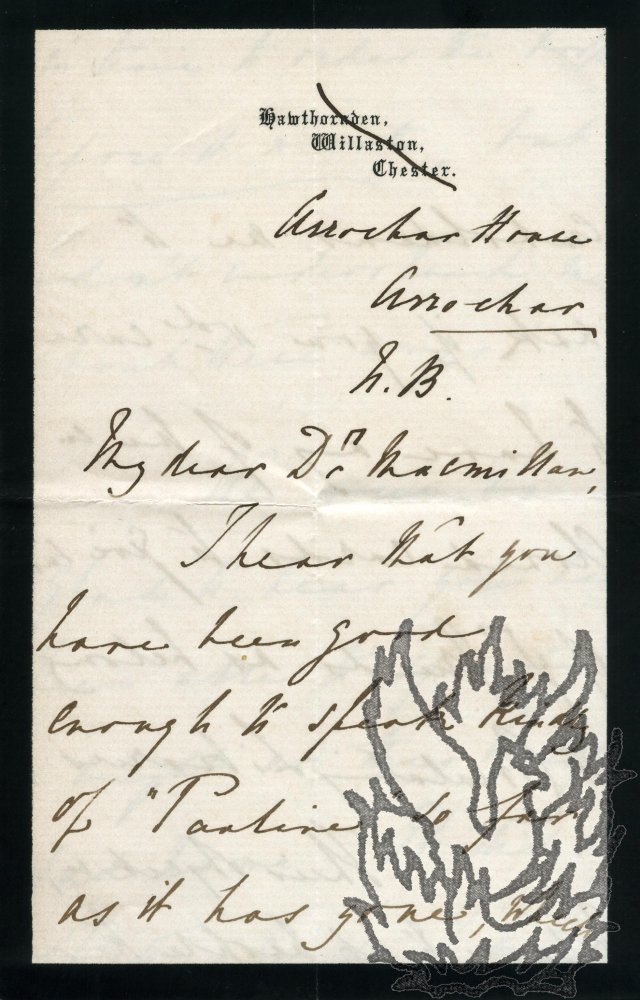 Hawthornden,
Willaston,
Chester.
Arrochar House
Arrochar
N. B.
My dear Dr Macmillan,
I hear that you
have been good
enough to speak kindly
of "Pauline" so far
as it has gone, which